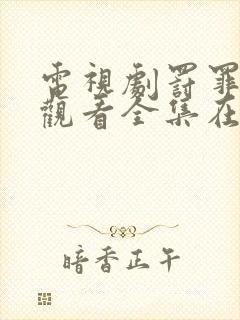 電視劇罰罪
觀看全集在
暗香正午